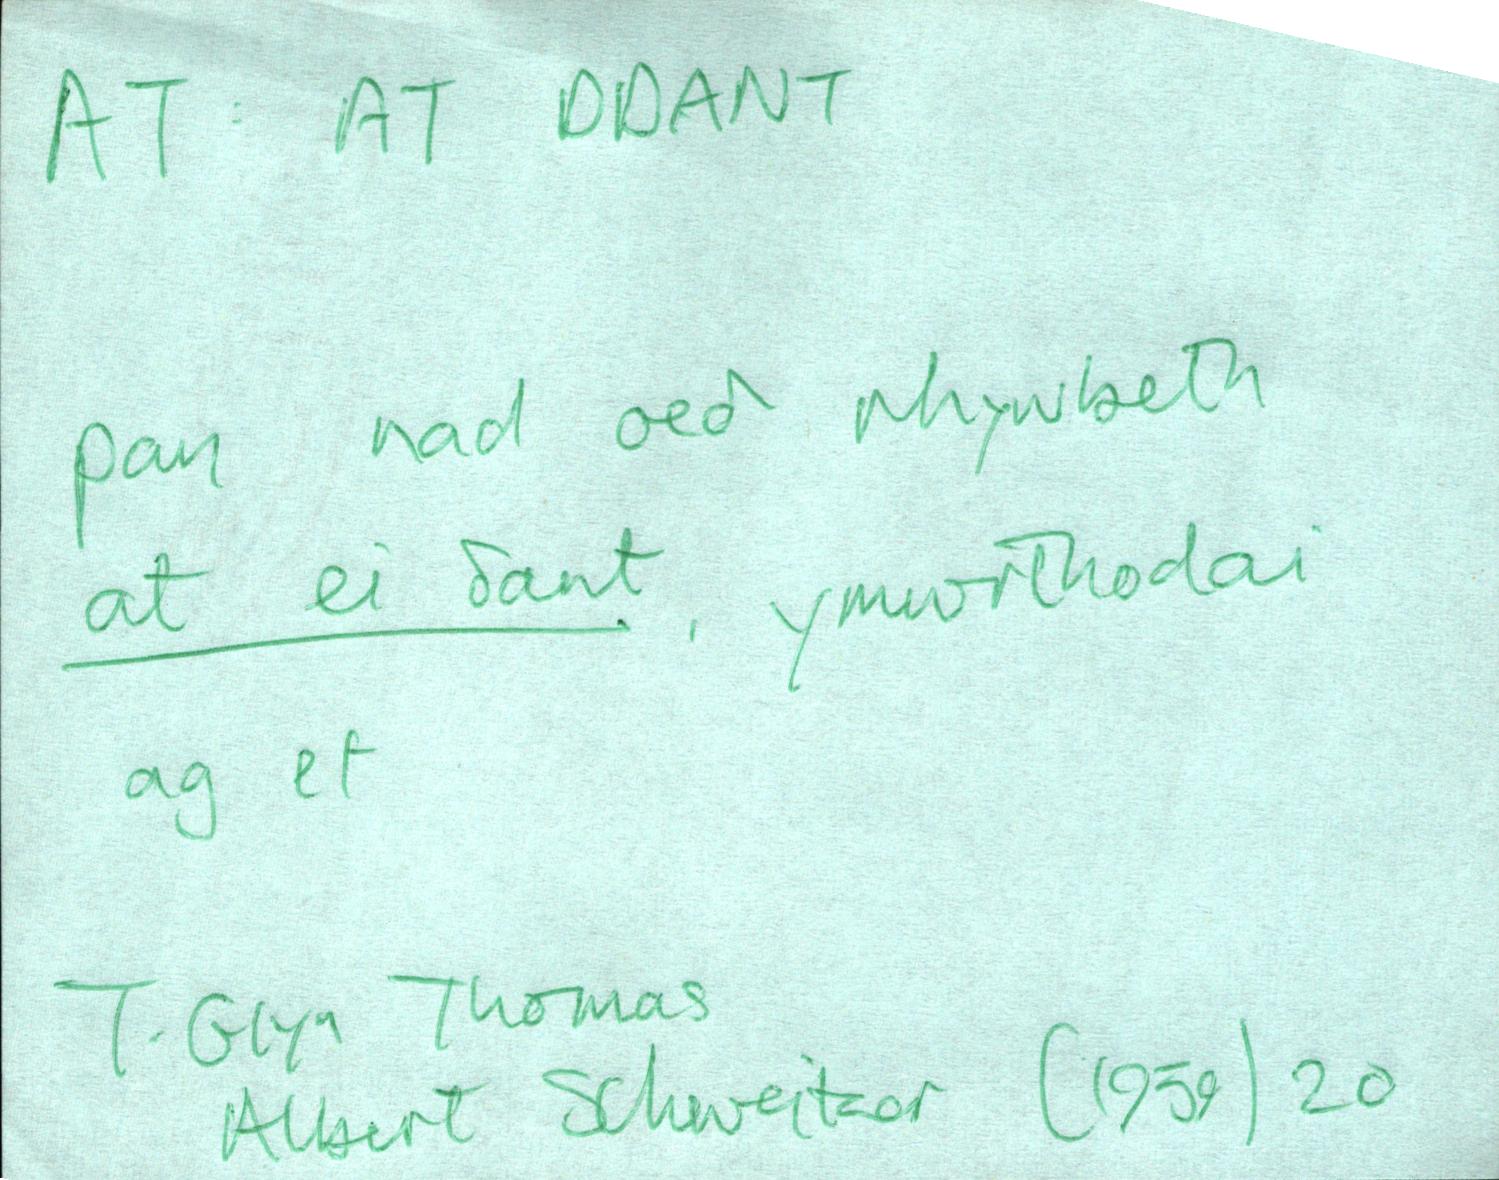 AT : AT DDANT
pan nad oeδ rhywbeth
at ei δant, ymwrthodai
ag ef
T. Glyn Thomas
Albert Schweitzer (1959) 20